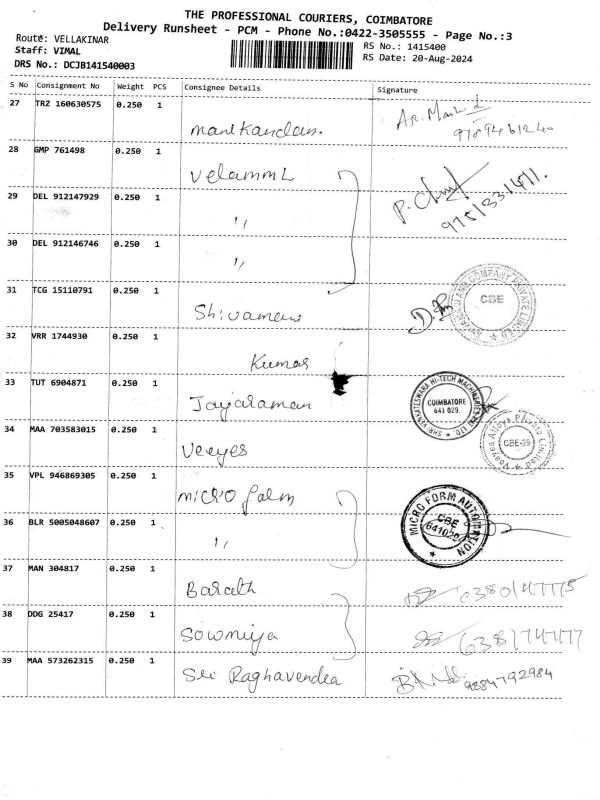 THE PROFESSIONAL COURIERS, COIMBATORE
Delivery Runsheet - PCM - Phone No.:0422-3505555 - Page No.:3
Route: VELLAKINAR
RS No.: 1415400
Staff: VIMAL
RS Date: 20-Aug-2024
DRS No.: DCJB141540003
S No Consignment No Weight PCS Consignee Details Signature
27 TRZ 160630575 0.250 1 manikandan.
28 GMP 761498 0.250 1 Velamml
29 DEL 912147929 0.250 1 "
30 DEL 912146746 0.250 1 "
31 TCG 15110791 0.250 1 Shivamani CBE
32 VRR 1744930 0.250 1 Kumar
33 TUT 6904871 0.250 1 Jayaraman SHRI VENKATESWARA HI-TECH MACHINERIES PVT. LTD. COIMBATORE 641 029.
34 MAA 703583015 0.250 1 Veeyes Veeyes Alloys Private Limited CBE-29
35 VPL 946869305 0.250 1 micro form
36 BLR 5005048607 0.250 1 " MICRO FORM AUTOMATION CBE 641029
37 MAN 304817 0.250 1 Barath
38 DDG 25417 0.250 1 Sowmiya
39 MAA 573262315 0.250 1 Sri Raghavendra 9884792984